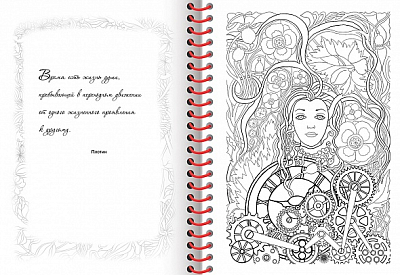 Время есть жизнь души,
пребывающей в переходном движении
от одного жизненного проявления
к другому.
Плотин